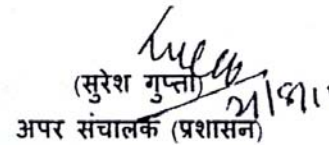 (सुरेश गुप्ता)
अपर संचालक (प्रशासन)